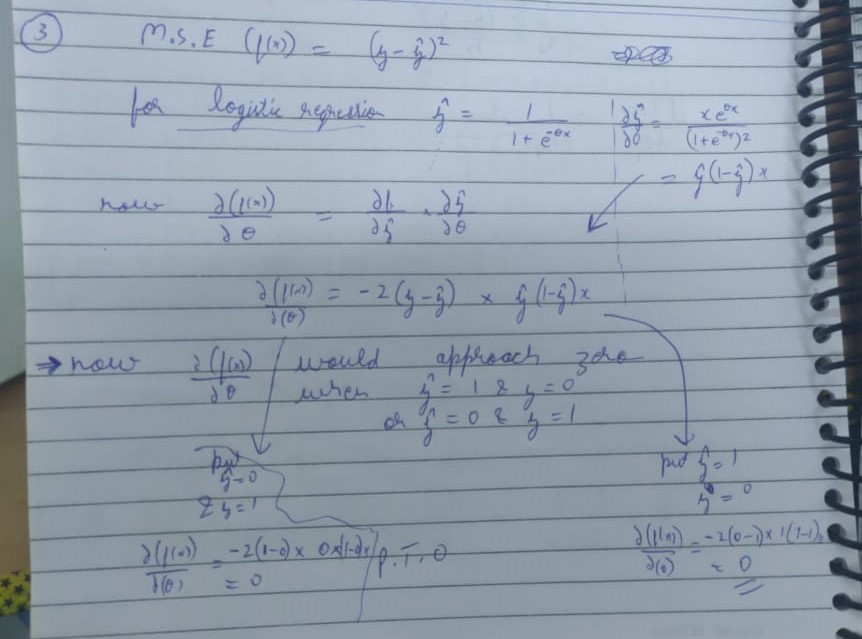 ③ M.S.E (f(x)) = (y - ŷ)²
for logistic regression ŷ = 1 / (1 + e^-θx) | ∂ŷ/∂θ = x e^θx / (1+e^-θx)²
= ŷ(1-ŷ)x
now ∂(f(x))/∂θ = ∂f/∂ŷ · ∂ŷ/∂θ
∂(f(x))/∂(θ) = -2(y-ŷ) × ŷ(1-ŷ)x
→ now ∂(f(x))/∂θ would approach zero
when ŷ = 1 & y = 0
or ŷ = 0 & y = 1
put ŷ=0
& y=1
∂(f(x))/∂(θ) = -2(1-0) × 0×(1-0)x
= 0
P.T.O
put ŷ = 1
y = 0
∂(f(x))/∂(θ) = -2(0-1)×1(1-1)
= 0